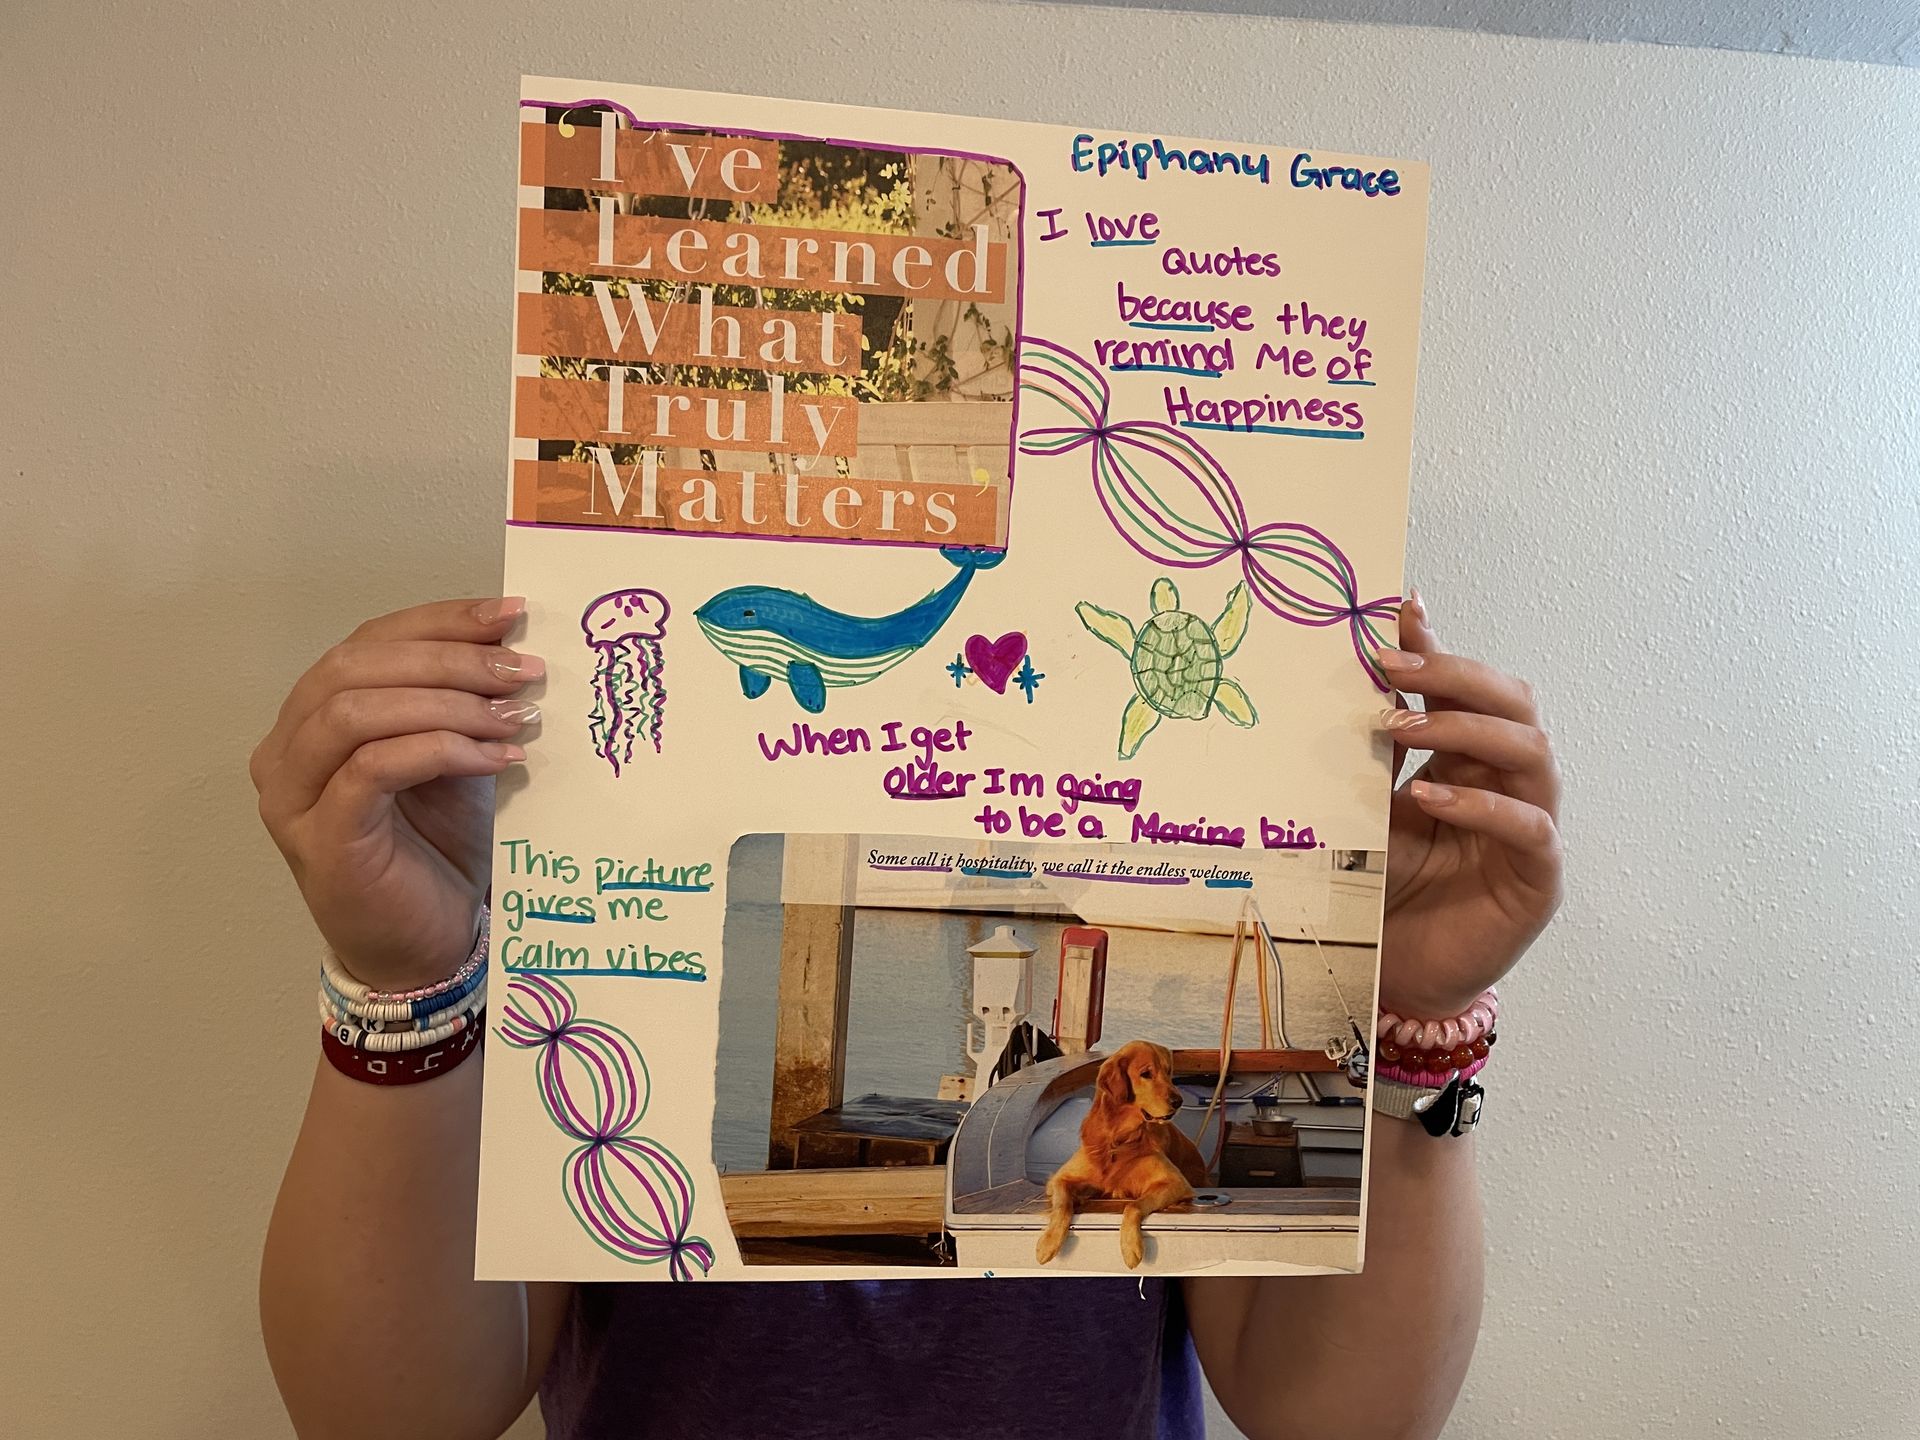 ‘I’ve
Learned
What
Truly
Matters’
Epiphany Grace
I love
Quotes
because they
remind Me of
Happiness
When I get
older Im going
to be a Marine bio.
This picture
gives me
Calm vibes
Some call it hospitality, we call it the endless welcome.
B K